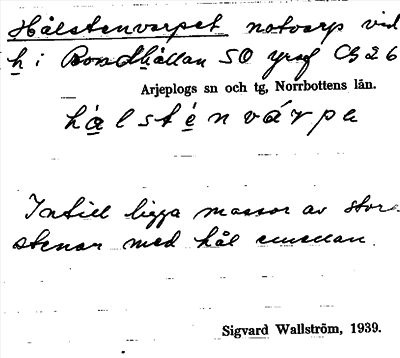 Hålstenvarpet notvarp vid
h i Bondhällan SO graf C 26
Arjeplogs sn och tg, Norrbottens län.
hålsténvárpa
Intill ligga massor av stor-
stenar med hål emellan.
Sigvard Wallström, 1939.